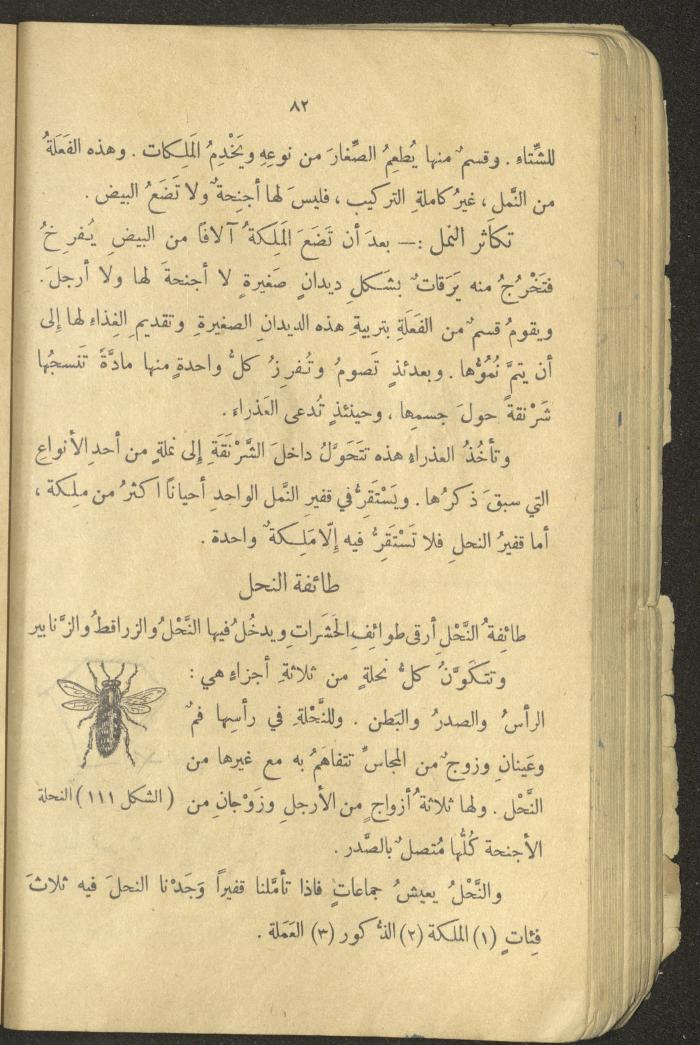 ٨٢
للشِّتاءِ . وقسمٌ منها يُطعِمُ الصِّغارَ من نوعِهِ ويَخْدِمُ المَلِكات . وهذه الفَعَلَةُ
من النَّمل ، غيرُ كاملةِ التركيب ، فليسَ لها أجنِحةٌ ولا تَضَعُ البيض .
تكاثر النمل :— بعدَ أن تَضَعَ المَلِكَةُ آلافًا من البيضِ يُفرِخُ
فتَخْرُجُ منه يَرَقاتٌ بشَكلِ ديدانٍ صَغيرةٍ لا أجنحةَ لها ولا أرجلَ .
ويقومُ قسمٌ من الفَعَلَةِ بتربيةِ هذه الديدانِ الصغيرةِ وتقديمِ الغِذاءِ لها إلى
أن يتمَّ نُمُوُّها . وبعدئذٍ تَصومُ وتُفرِزُ كلُّ واحدةٍ منها مادَّةً تَنسجُها
شَرْنقةً حولَ جسمِها ، وحينئذٍ تُدعى العَذراء .
وتأخُذُ العذراءِ هذه تتَحَوَّلُ داخلَ الشَّرْنَقَةِ إلى نملةٍ من أحدِ الأنواعِ
التي سبقَ ذكرُها . ويَسْتَقِرُّ في قفيرِ النَّمل الواحدِ أحيانًا اكثرُ من ملِكة ،
أما قفيرُ النحلِ فلا تَسْتَقِرُّ فيه إلّا مَلِكةٌ واحدة .
طائفة النحل
طائِفةُ النَّحْلِ أرقى طوائفِ الحَشَراتِ ويدخُلُ فيها النَّحْلُ والزراقطُ والزَّنابير
وتتكَوَّنُ كلُّ نحلةٍ من ثلاثةِ أجزاءٍ هي :
الرأسُ والصدرُ والبَطن . وللنَّحْلةِ في رأسِها فمٌ
وعَينانِ وزوجٌ من المجاسِّ تتفاهَمُ به مع غيرها من
النَّحْل . ولها ثلاثةُ أزواجٍ من الأرجلِ وزَوْجانِ من
(الشكل ١١١) النحلة
الأجنحة كُلُّها مُتصلٌ بالصَّدر .
والنَّحْلُ يعيشُ جماعاتٍ فاذا تأمَّلنا قفيراً وَجَدْنا النحلَ فيه ثلاثَ
فِئاتٍ (١) الملكة (٢) الذُّكور (٣) العَمَلة .